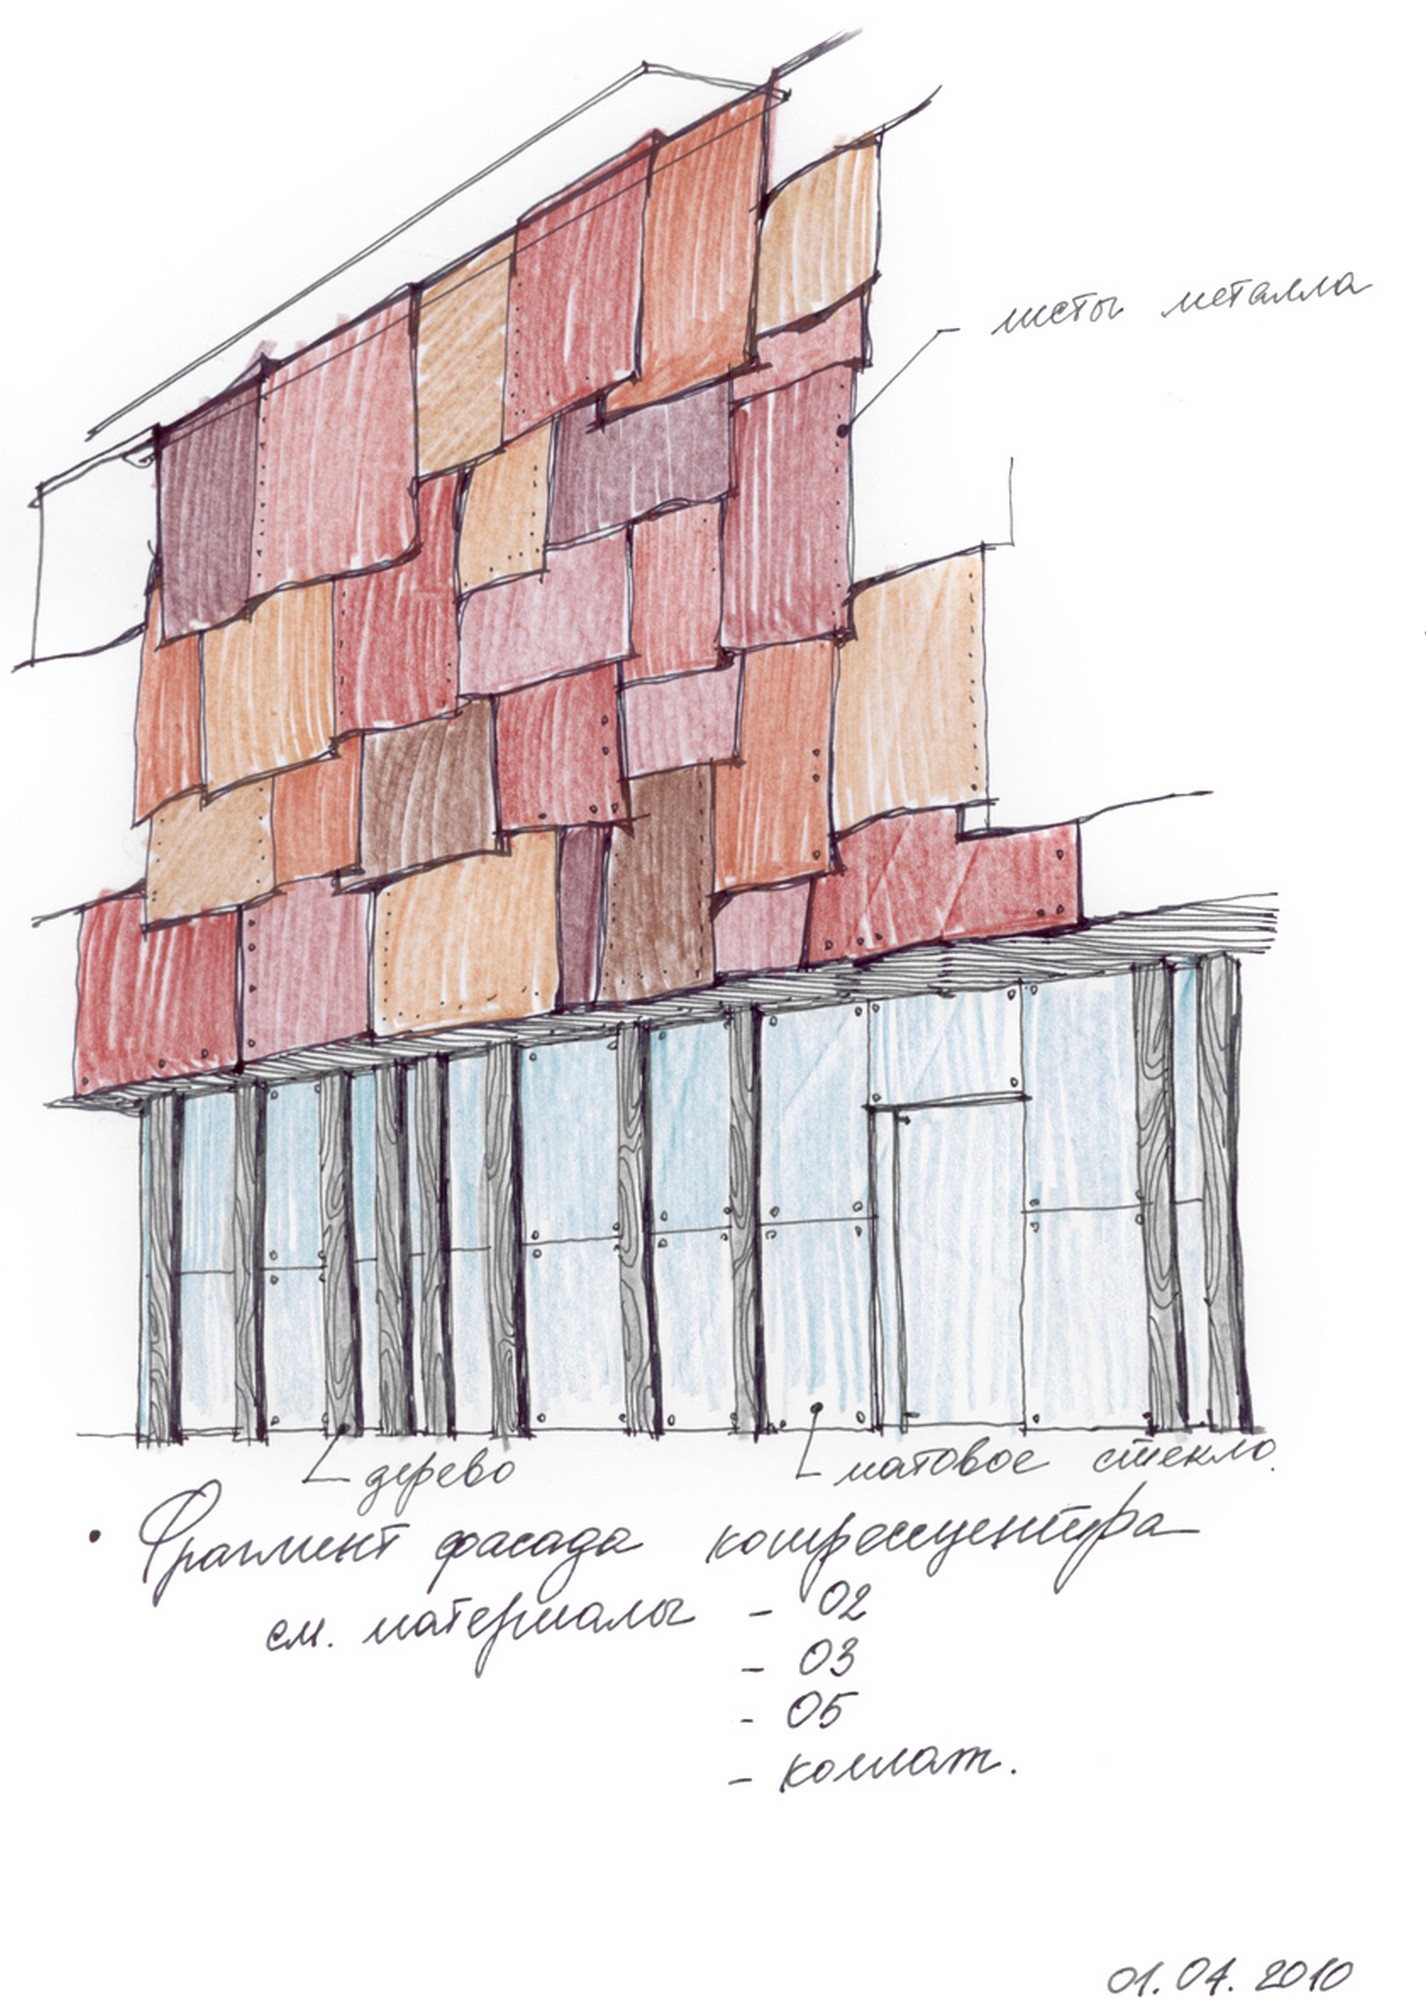 листы металла
дерево
матовое стекло.
• Фрагмент фасада конгрессцентра
см. материалы - 02
- 03
- 05
- коллаж.
01.04.2010